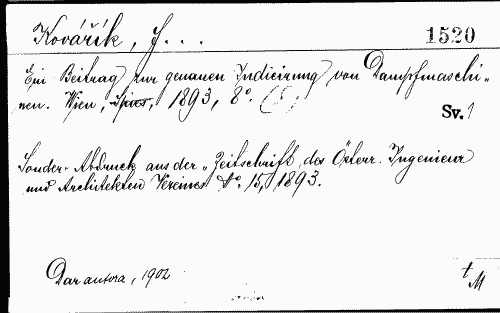 Kovářík, J...
1520
Ein Beitrag zur genauen Indicirung von Dampfmaschi-
nen. Wien, 1893, 8°. (S)
Sv. 1
Sonder-Abdruck aus der „Zeitschrift des Österr. Ingenieur
und Architekten Vereines No. 15, 1893.
Dar autora, 1902
t
M